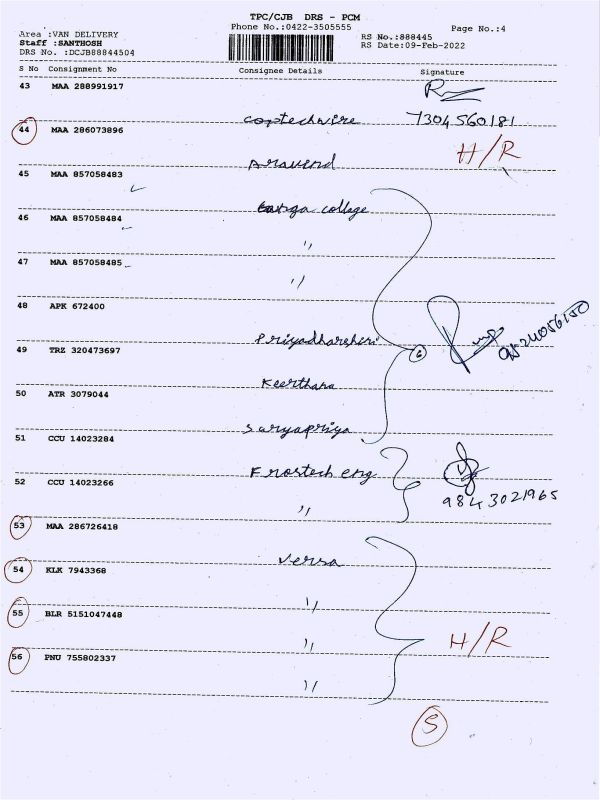 TPC/CJB DRS - PCM
Phone No.:0422-3505555
Page No.:4
Area :VAN DELIVERY
RS No.:888445
Staff :SANTHOSH
RS Date:09-Feb-2022
DRS No. :DCJB88844504
S No Consignment No Consignee Details Signature
43 MAA 288991917
coptechwire 7304560181
44 MAA 286073896 H/R
Aravind
45 MAA 857058483
college
46 MAA 857058484
"
47 MAA 857058485
"
48 APK 672400
Priyadharshini
6
49 TRZ 320473697
Keerthana
50 ATR 3079044
Suryapriya
51 CCU 14023284
Frostech eng
52 CCU 14023266 9843021965
"
53 MAA 286726418
Versa
54 KLK 7943368
"
55 BLR 5151047448
" H/R
56 PNU 755802337
"
5